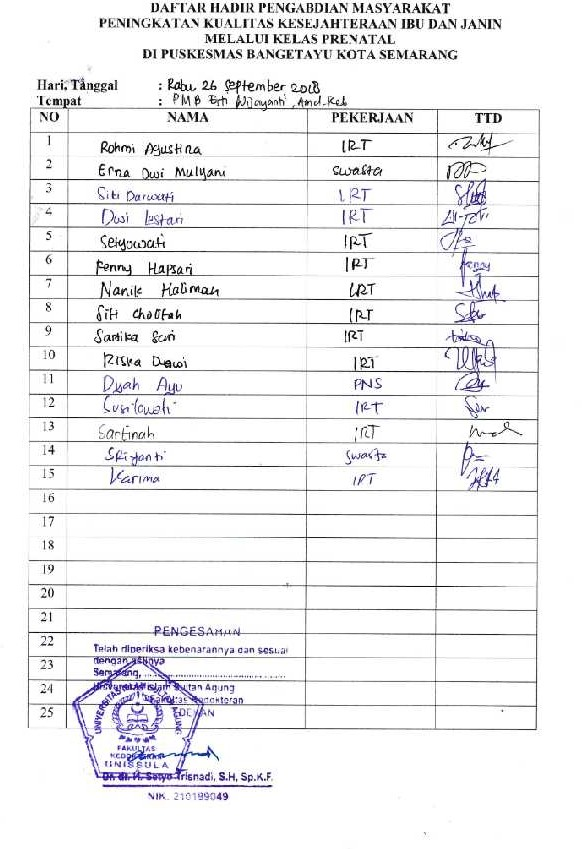 DAFTAR HADIR PENGABDIAN MASYARAKAT
PENINGKATAN KUALITAS KESEJAHTERAAN IBU DAN JANIN
MELALUI KELAS PRENATAL
DI PUSKESMAS BANGETAYU KOTA SEMARANG
Hari, Tanggal : Rabu 26 September 2018
Tempat : PMB Erti Wijayanti, Amd.Keb
NO NAMA PEKERJAAN TTD
1 Rohmi Agustina IRT
2 Erna Dwi Mulyani Swasta
3 Siti Darwati IRT
4 Dwi Lestari IRT
5 Setyowati IRT
6 Fenny Hapsari IRT Fenny
7 Nanik Halimah IRT
8 Siti Cholifah IRT
9 Santika Sari IRT
10 Riska Dewi IRT
11 Dyah Ayu PNS
12 Susilowati IRT
13 Sartinah IRT
14 Sriyanti Swasta
15 Karima IRT
16
17
18
19
20
21
PENGESAHAN
22
Telah diperiksa kebenarannya dan sesuai
dengan aslinya
23
Semarang, ...
24
Universitas Islam Sultan Agung
Fakultas Kedokteran
25
DEKAN
UNIVERSITAS ISLAM SULTAN AGUNG
FAKULTAS
KEDOKTERAN
UNISSULA
Dr. dr. H. Setyo Trisnadi, S.H, Sp.K.F.
NIK. 210199049